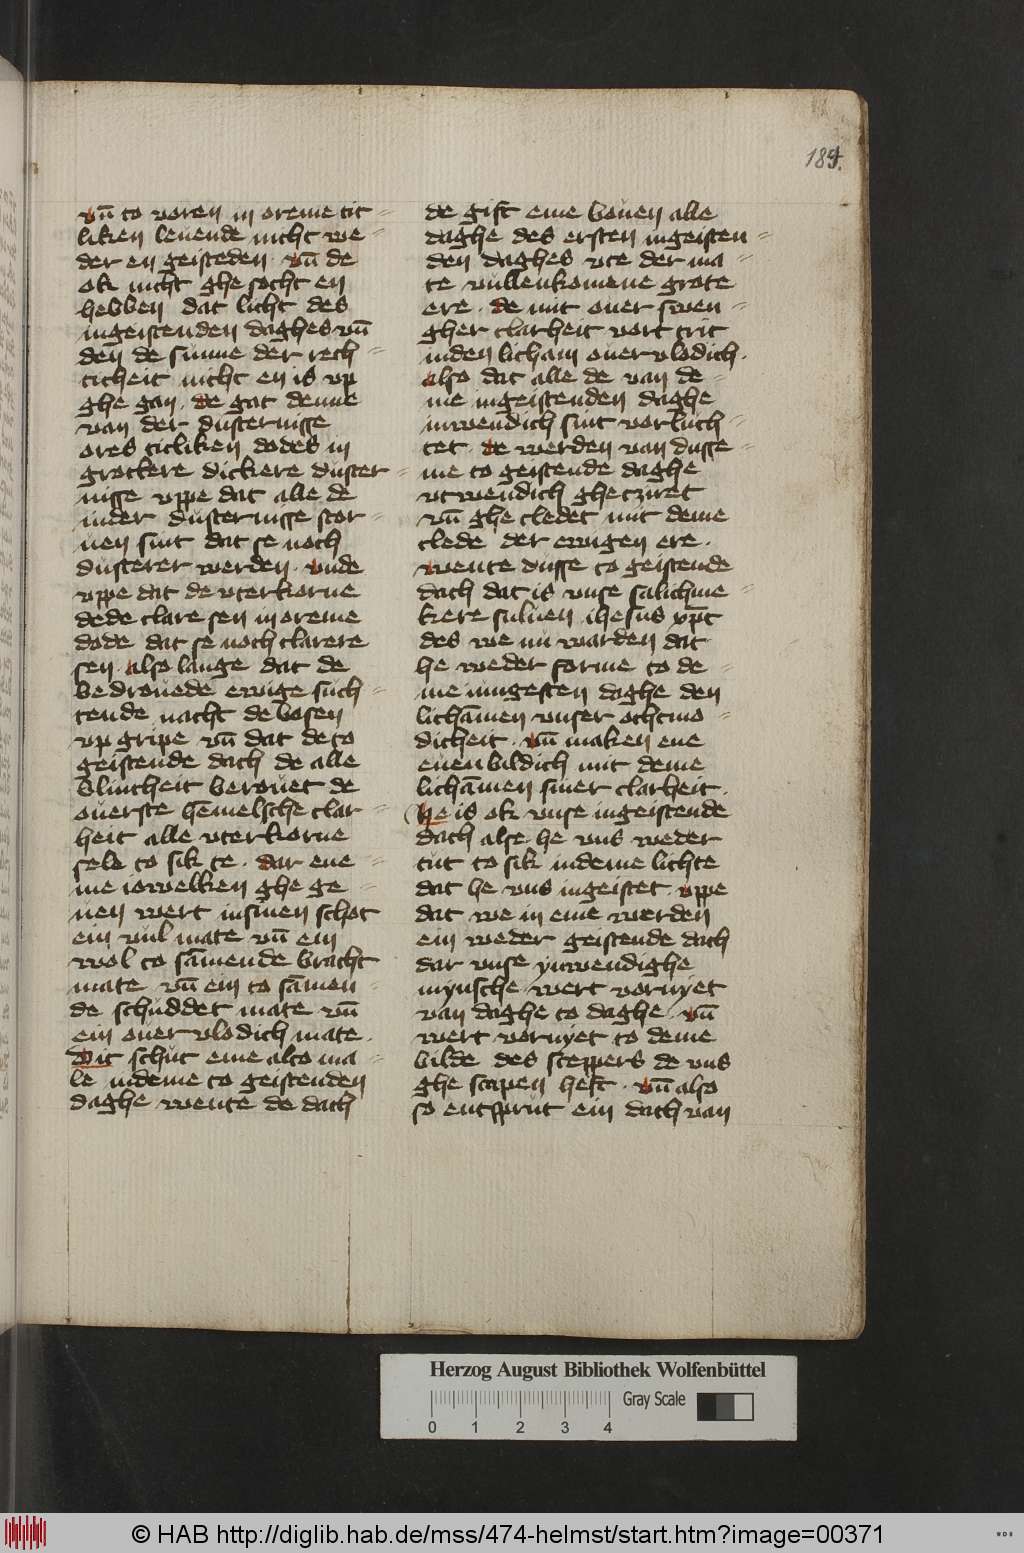 184.
vn̄ to voren in oreme tit⸗
liken leuende nicht we⸗
der en geisteden · vn̄ de
ok nicht ghe socht en
hebben dat licht des
ingeistenden daghes vn̄
den de sunne der rech⸗
ticheit nicht en is vp
ghe gan · de gat denne
van der dusternisse
ores titliken dodes in
grottere dickere duster⸗
nisse vppe dat alle de
inder dusternisse stor⸗
uen sint dat se noch
dusterer werden · vnde
vppe dat de vterkorne
dede clare sen in oreme
dode dat se noch clarere
sen · also lange dat de
bedrouede ewige such⸗
tende nacht de bosen
vp gripe vn̄ dat de to
geistende dach de alle
blintheit berouet de
ouerste hemelsche clar⸗
heit alle vterkorne
sele to sik te · dar ene⸗
me iowelken ghe ge⸗
uen wert in sinen schot
ein vul mate vn̄ ein
wol to sāmende bracht
mate vn̄ ein to sāmen⸗
de schuddet mate vn̄
ein ouer vlodich mate ·
Dit schut eme alto ma⸗
le indeme to geistenden
daghe wente de dach
de gift eme bouen alle
daghe des ersten ingeisten⸗
den daghes vte der ma⸗
te vullenkomene grote
ere · de mit ouer swen⸗
gher clarheit vort trit
inden licham ouer vlodich ·
also dat alle de van de⸗
me ingeistenden daghe
inwendich sint vorluch⸗
tet · de werden van dusse⸗
me to geistende daghe
vtwendich ghetziret
vn̄ ghe cledet mit deme
clede der ewigen ere ·
wente dusse to geistende
dach dat is vnse salichme⸗
kere suluen ihesus xp̄t
des we nu warden dat
he weder forme to de⸗
me iungesten daghe den
lichāmen vnser othmo⸗
dicheit · vn̄ maken ene
euenbildich mit deme
lichāmen siner clarheit ·
He is ok vnse ingeistende
dach alse he vns weder
tut to sik indeme lichte
dat he vns ingeistet vppe
dat we in eme werden
ein weder geistende dach
dar vnse ynwendighe
mynsche wert vornyet
van daghe to daghe · vn̄
wert vornyet to deme
bilde des sceppers de vns
ghe scapen heft · vn̄ also
so entsprut ein dach van
Herzog August Bibliothek Wolfenbüttel
Gray Scale
0 1 2 3 4
© HAB http://diglib.hab.de/mss/474-helmst/start.htm?image=00371